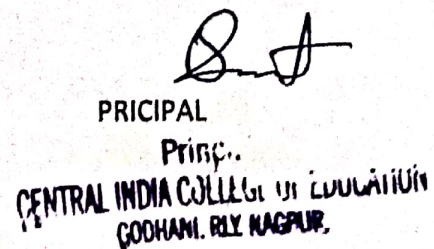 PRICIPAL
CENTRAL INDIA COLLEGE OF EDUCATION
GODHANI. RLY NAGPUR.